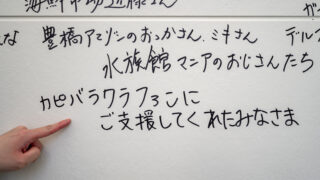 海鮮市場近藤さん
豊橋アマゾンのおっかさん、ミキさん デル
水族館マニアのおじさんたち
カピバラクラファンに
ご支援してくれたみなさま